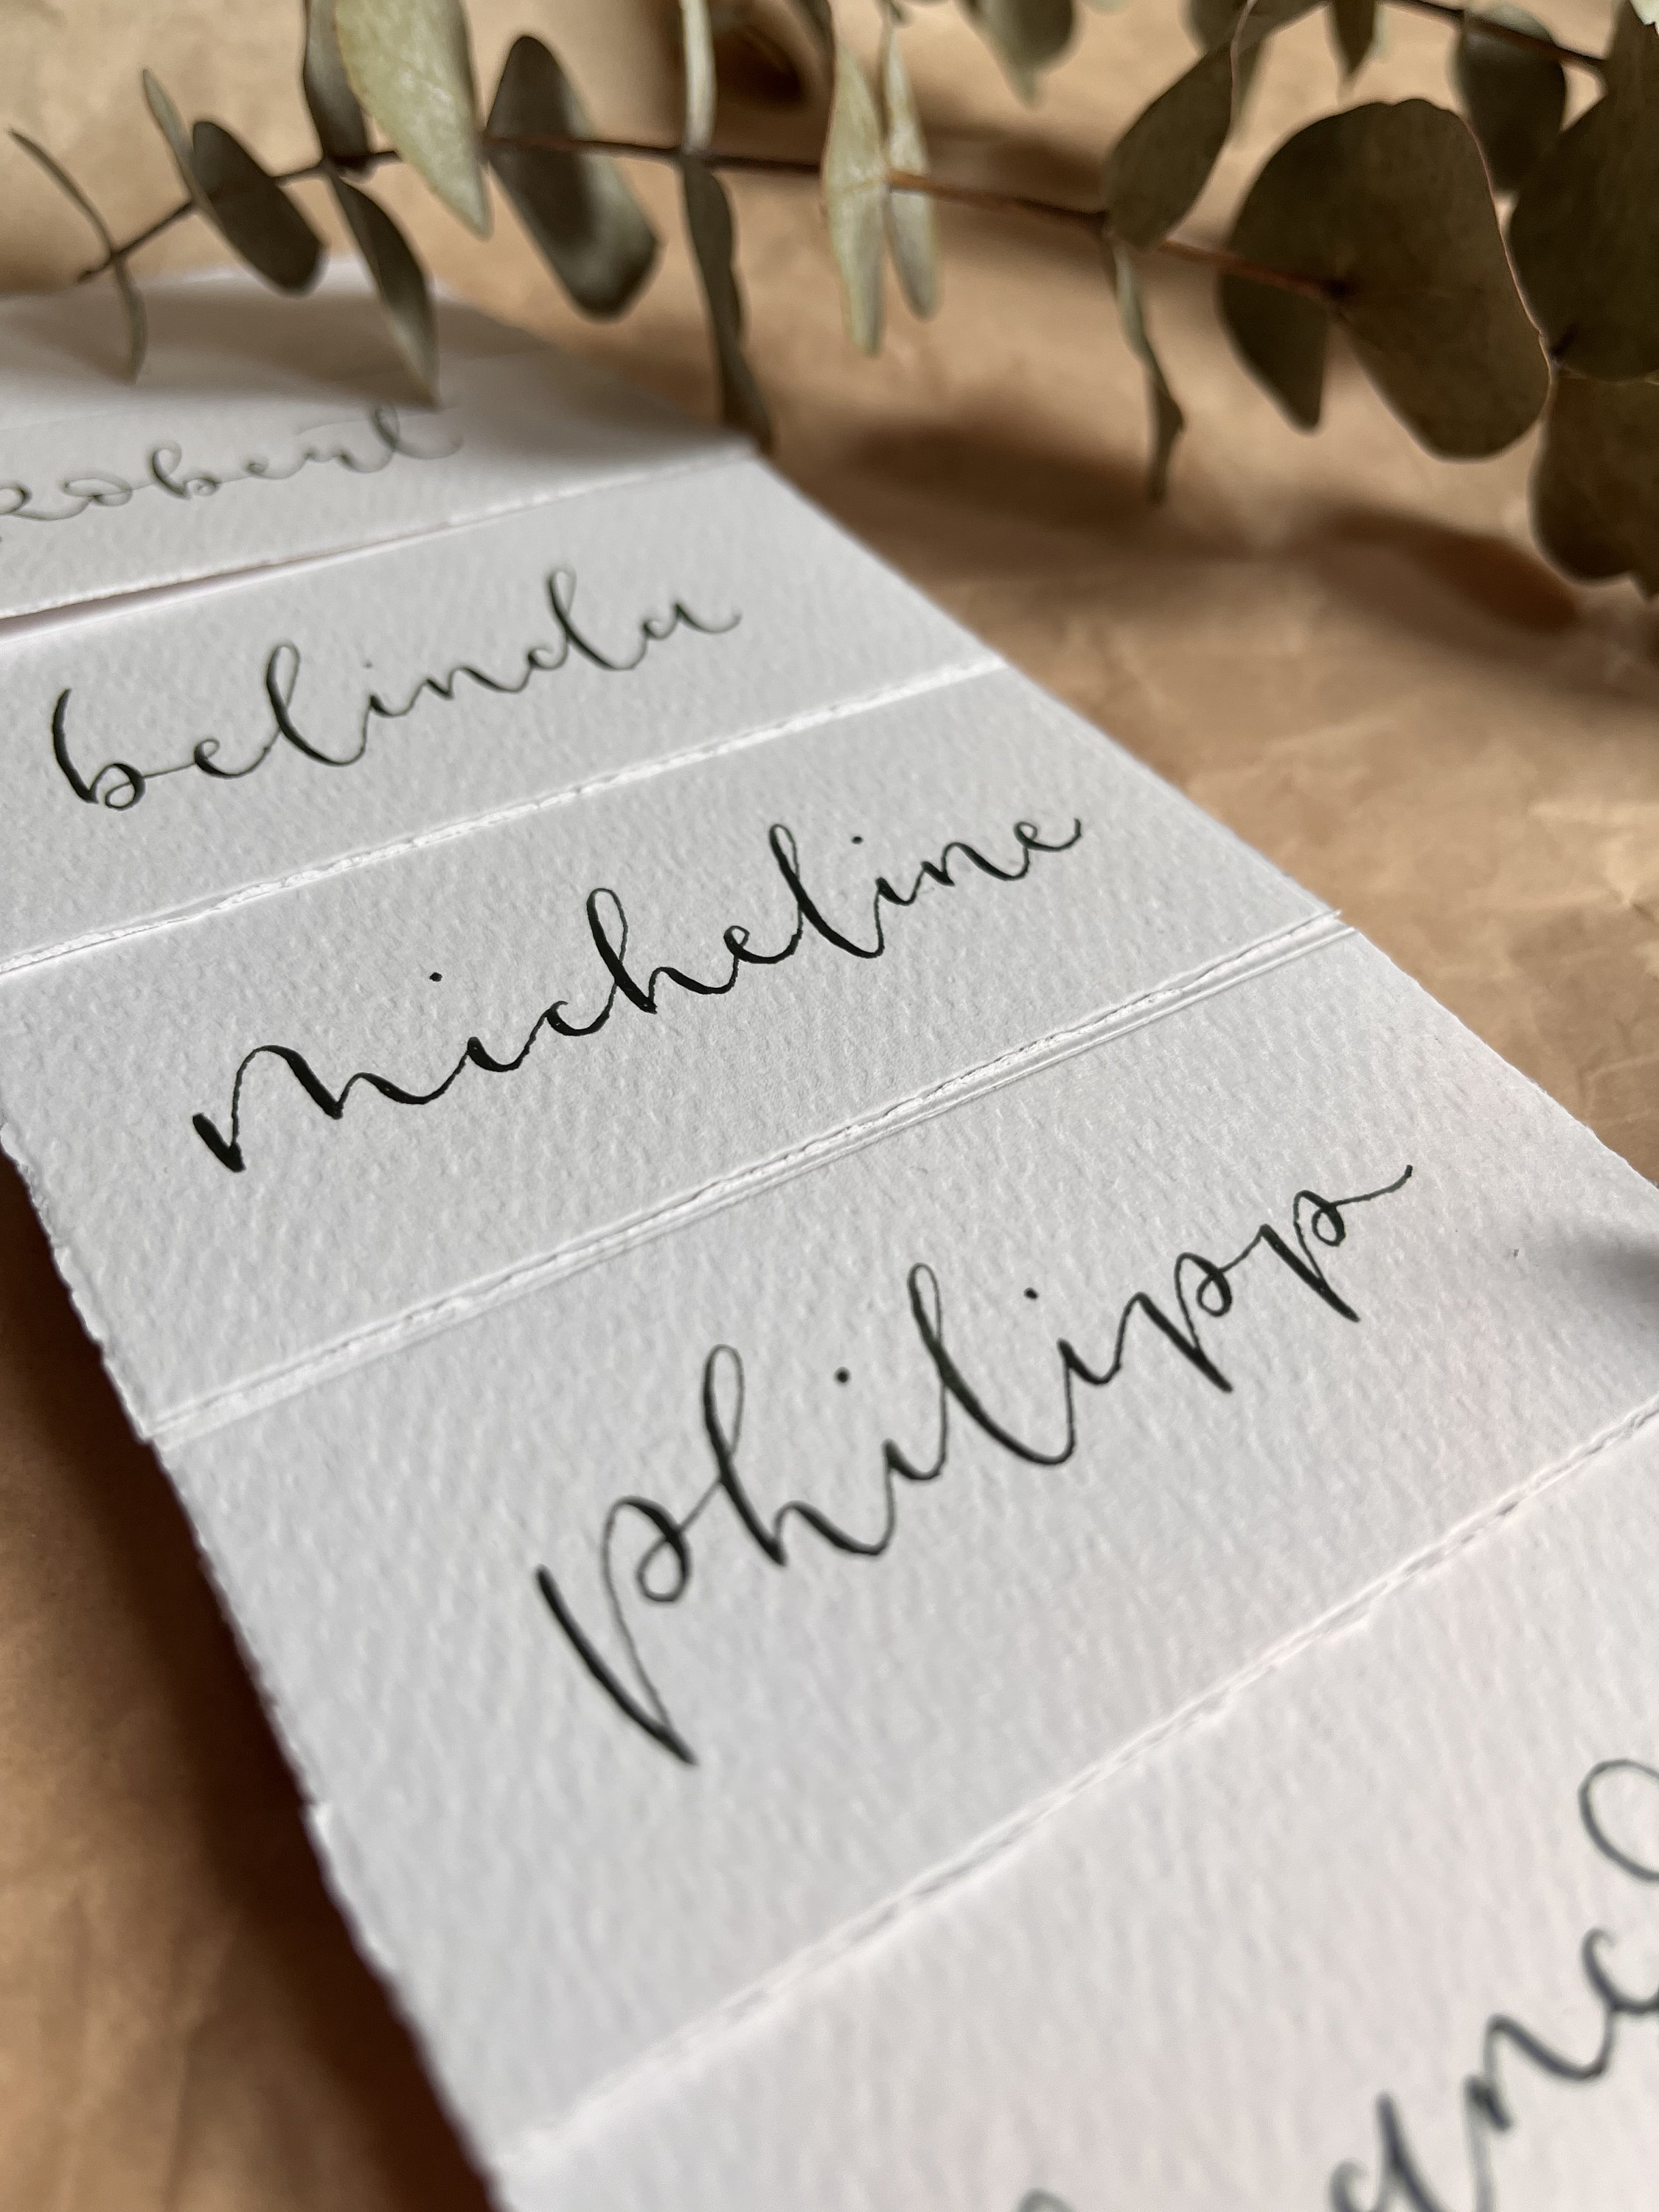 robert
belinda
micheline
philipp